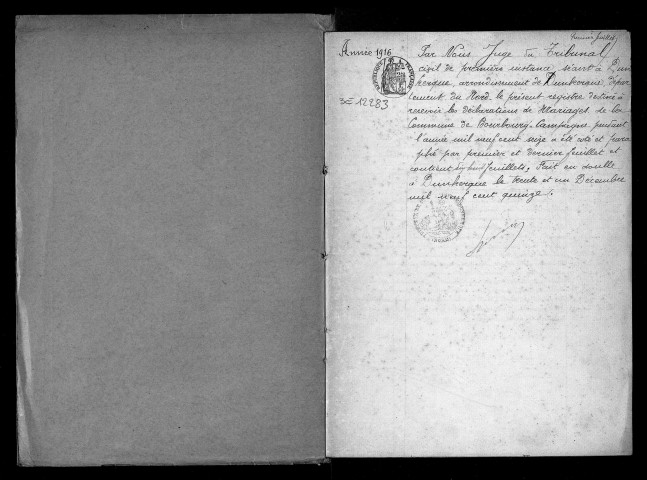 premier feuillet
Année 1916
3E 12283
Par Nous Juge du Tribunal
civil de première instance, séant à Dun
kerque, arrondissement de Dunkerque, dépar
tement du Nord, le présent registre destiné à
recevoir les déclarations de Mariages, de la
Commune de Bourbourg-Campagne pendant
l'année mil neuf cent seize a été coté et para
phé par premier et dernier feuillet et
contient feuillets. Fait en double
à Dunkerque le trente et un Décembre
mil neuf cent quinze.